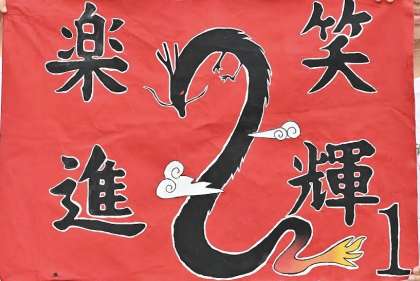 笑 楽
輝 進
1